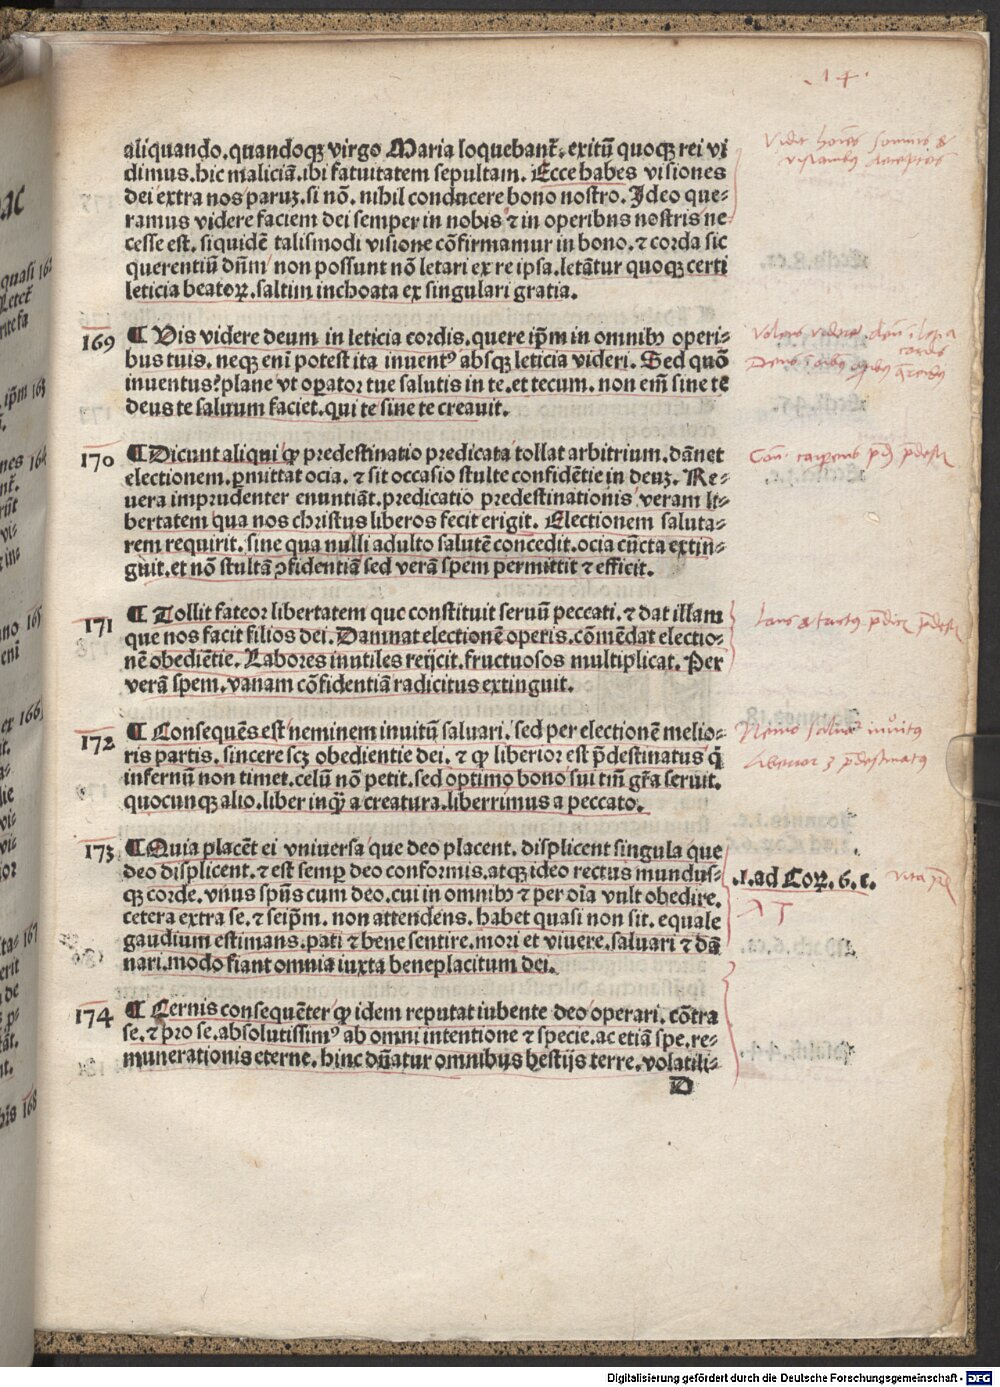 .14.
aliquando.quandoqꝫ virgo Maria loquebant̃.exitũ quoqꝫ rei vi
dimus.hic maliciã.ibi fatuitatem sepultam. Ecce habes visiones
dei extra nos paruʒ.si nõ. nihil conducere bono nostro. Ideo que⸗
ramus videre faciem dei semper in nobis ⁊ in operibus nostris ne⸗
cesse est. siquidẽ talismodi visione cõfirmamur in bono. ⁊ corda sic
querentiũ dñm non possunt nõ letari ex re ipsa.letãtur quoqꝫ certi
leticia beatoꝝ.saltim inchoata ex singulari gratia.
169 ¶ Vis videre deum in leticia cordis.quere ip̃m in omnibꝰ operi⸗
bus tuis. neqꝫ eni potest ita inuentꝰ absqꝫ leticia videri. Sed quõ
inuentus?plane vt oꝑator tue salutis in te.et tecum. non em̃ sine te
deus te saluum faciet.qui te sine te creauit.
170 ¶Dicunt aliqui ꝙ predestinatio predicata tollat arbitrium.dãnet
electionem.ꝑmittat ocia. ⁊ sit occasio stulte confidẽtie in deuʒ. Re⸗
uera imprudenter enunciãt.predicatio predestinationis veram li⸗
bertatem qua nos christus liberos fecit erigit. Electionem saluta⸗
rem requirit.sine qua nulli adulto salutẽ concedit.ocia cũcta extin⸗
guit.et nõ stultã ꝯfidentiã sed verã spem permittit ⁊ efficit.
171 ¶ Tollit fateor libertatem que constituit seruũ peccati. ⁊ dat illam
que nos facit filios dei. Damnat electionẽ operis.cõmẽdat electio⸗
nẽ obediẽtie. Labores inutiles reijcit.fructuosos multiplicat. Per
verã spem.vanam cõfidentiã radicitus extinguit.
172 ¶ Consequẽs est neminem inuitũ saluari. sed per electionẽ melio⸗
ris partis. sincere scʒ obedientie dei. ⁊ ꝙ liberior est p̃destinatus q̃
infernũ non timet.celũ nõ petit.sed optimo bono sui tm̃ gr̃a seruit.
quocunqꝫ alio.liber inq̃ a creatura.liberrimus a peccato.
Nemo saluat̃ inuitꝰ
liberior ʒ p̃destinatꝰ
173 ¶Quia placẽt ei vniuersa que deo placent. displicent singula que
deo displicent. ⁊ est semꝑ deo conformis.atqꝫ ideo rectus mundus⸗
qꝫ corde. vnus spũs cum deo.cui in omnibꝰ ⁊ per oĩa vult obedire.
cetera extra se. ⁊ seip̃m. non attendens. habet quasi non sit. equale
gaudium estimans.pati ⁊ bene sentire.mori et viuere.saluari ⁊ dã
nari.modo fiant omnia iuxta beneplacitum dei.
.1.ad Coꝝ.6.c.
174 ¶ Cernis consequẽter ꝙ idem reputat iubente deo operari. cõtra
se. ⁊ pro se.absolutissimꝰ ab omni intentione ⁊ specie.ac etiã spe.re⸗
munerationis eterne. hinc dñatur omnibus bestijs terre.volatili⸗
D
Digitalisierung gefördert durch die Deutsche Forschungsgemeinschaft - DFG